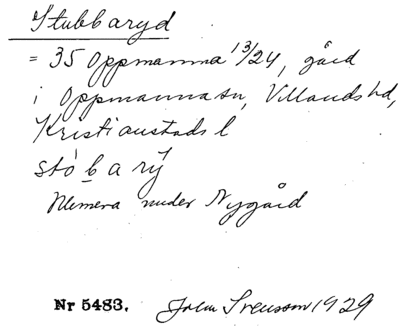 Stubbaryd
= 35 Oppmanna 13/24, gård
i Oppmanna sn, Villands hd,
Kristianstads l
stó b a rý
Numera under Nygård
Nr 5483. John Svensson 1929